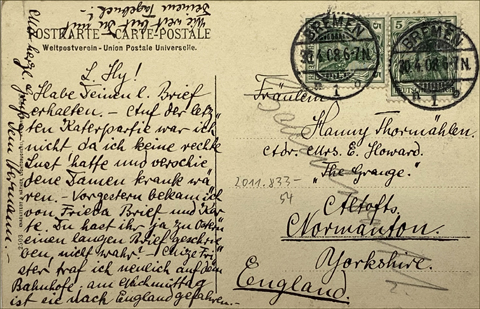 POSTKARTE - CARTE POSTALE
Weltpostverein - Union Postale Universelle.
L. Hy!
Habe Deinen l. Brief
erhalten. – Auf der letz-
ten Katerpartie war ich
nicht da ich keine rechte
Lust hatte und verschie
dene Damen krank wä
ren. – Vorgestern bekam ich
von Frieda Brief und Kar
te. Du hast ihr ja zu Ostern
einen langen Brief geschrie
ben, nicht wahr! –
traf ich neulich auf dem
Bahnhofe, am Nachmittag
ist sie nach England gefahren. –
Hermann. –
BREMEN
30.4.08.6-7N.
1
BREMEN
30.4.08.6-7N.
1
5
5
Fräulein
Hanny Thormählen.
Mrs. E. Howard.
"The Grange".
Altofts
Normanton.
Yorkshire.
England.
2011.833-
54